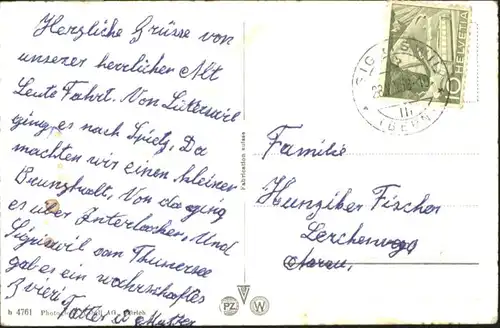 Herzliche Grüsse von
unserer herrlichen Alt
Leute Fahrt. Von Lüterswil
ging es nach Spiez, Da
machten wir einen kleinen
Von da ging
es über Interlacken, Und
Sigriswil am Thunersee
gab es ein währschaftes
Zvieri
Vatter & Mutter
Familie
Hunziker Fischer
Lerchenweg
Aarau,
HELVETIA
10
SIGRISWIL
(BERN)
Fabrication suisse
h 4761 AG. Zürich
PZ W